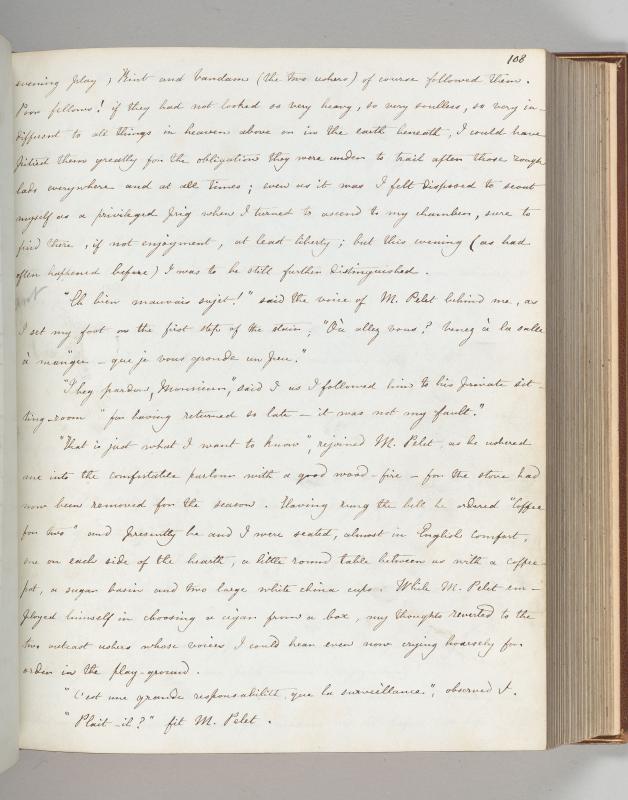 108
evening play ; Kint and Vandam (the two ushers) of course followed them.
Poor fellows! if they had not looked so very heavy, so very soulless, so very in-
different to all things in heaven above or in the earth beneath, I could have
pitied them greatly for the obligation they were under to trail after those rough
lads everywhere and at all times ; even as it was I felt disposed to scout
myself as a privileged prig when I turned to ascend to my chamber, sure to
find there, if not enjoyment, at least liberty ; but this evening (as had
often happened before) I was to be still further distinguished.
"Eh bien mauvais sujet!" said the voice of M. Pelet behind me, as
I set my foot on the first step of the stair, "Où allez vous? Venez à la salle
à manger - que je vous gronde un peu."
"I beg pardon, Monsieur", said I as I followed him to his private sit-
ting-room " for having returned so late - it was not my fault."
"That is just what I want to know", rejoined M. Pelet, as he ushered
me into the comfortable parlour with a good wood-fire - for the stove had
now been removed for the season. Having rung the bell he ordered "Coffee
for two" and presently he and I were seated, almost in English comfort,
one on each side of the hearth, a little round table between us with a coffee-
pot, a sugar basin and two large white china cups. While M. Pelet em-
ployed himself in choosing a cigar from a box, my thoughts reverted to the
two outcast ushers whose voices I could hear even now crying hoarsely for
order in the play-ground.
"C'est une grande responsabilité, que la surveillance", observed I.
"Plait-il?" fit M. Pelet.